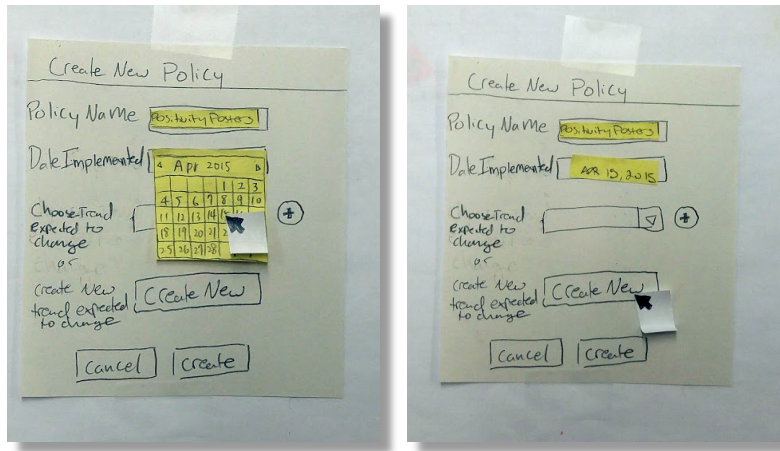 Create New Policy
Policy Name Positivity Posters
Date Implemented
Apr 2015
1 2 3
4 5 6 7 8 9 10
11 12 13 14 15
18 19 20 21 2
25 26 27 28
Choose Trend
Expected to
change
or
Create New
trend expected
to change
Create New
Cancel Create
Create New Policy
Policy Name Positivity Posters
Date Implemented APR 15, 2015
Choose Trend
Expected to
change
or
Create New
trend expected
to change
Create New
Cancel Create